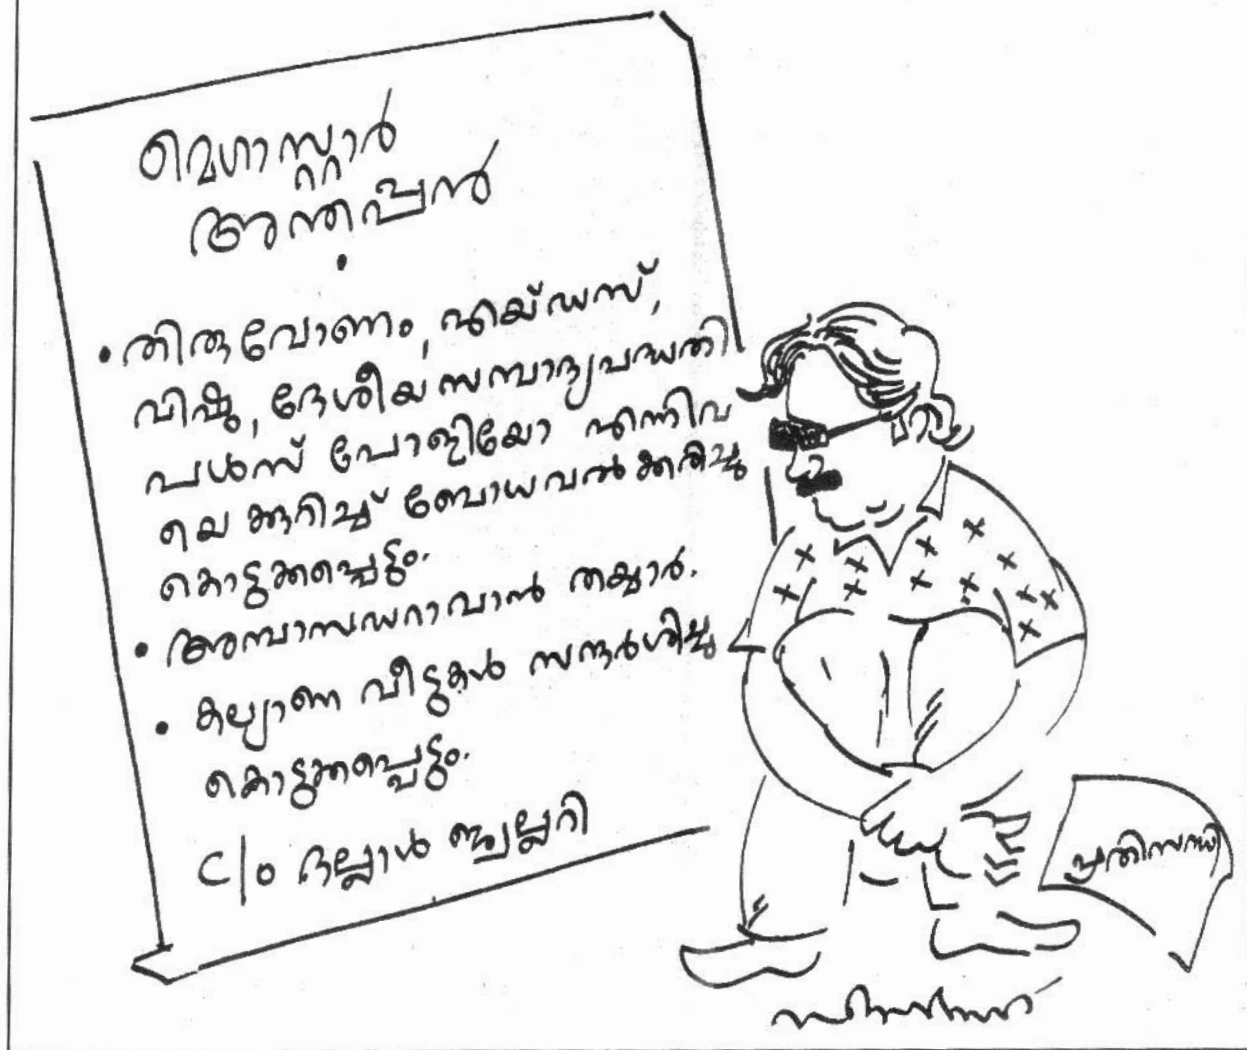 മെഗാസ്റ്റാർ
അന്തപ്പൻ
• തിരുവോണം, എയ്ഡസ്,
വിഷു, ദേശീയ സമ്പാദ്യപദ്ധതി
പൾസ് പോളിയോ എന്നിവ
യെ ക്കുറിച്ച് ബോധവൽക്കരിച്ചു
കൊടുക്കപ്പെട്ടും.
• അമ്പാസഡറാവാൻ തയ്യാർ.
• കല്യാണ വീട്ടുകൾ സന്ദർശിച്ചു
കൊടുക്കപ്പെട്ടും.
C/o ദല്ലാൾ ജ്വല്ലറി
പ്രതിസന്ധി